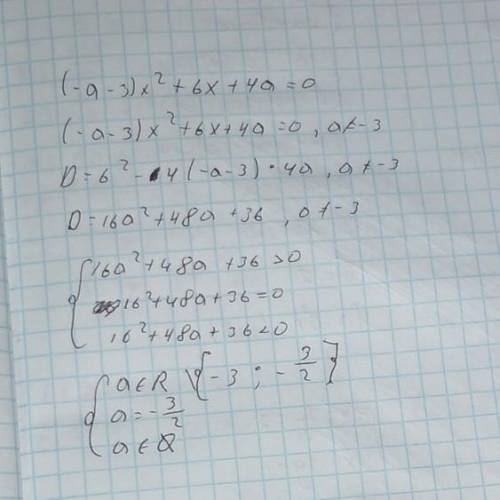 (-a-3)x²+6x+4a=0
(-a-3)x²+6x+4a=0, a≠-3
D=6²-4(-a-3)·4a, a≠-3
D=16a²+48a+36, a≠-3
{16a²+48a+36>0
16²+48a+36=0
16²+48a+36<0
{a∈R\{-3; -3/2}
a=-3/2
a∈Ø